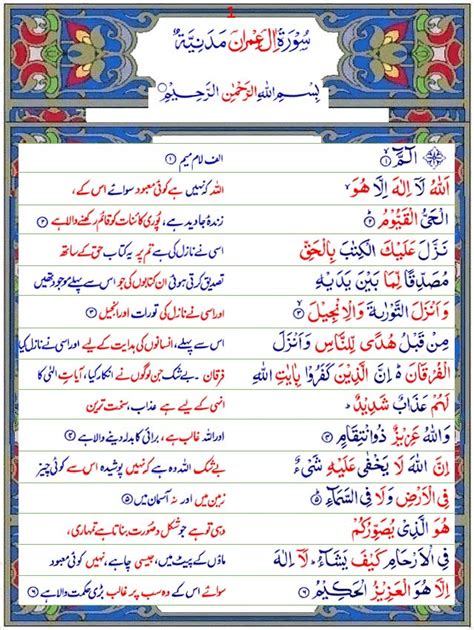 1
سُوْرَةُ اٰلِ عِمْرٰنَ مَدَنِيَّةٌ
بِسْمِ اللهِ الرَّحْمٰنِ الرَّحِيْمِ
الٓمّٓ ۙ﴿۱﴾ الف لام میم ﴿۱﴾
اللهُ لَاۤ اِلٰهَ اِلَّا هُوَ ۙ اللہ کہ نہیں ہے کوئی معبود سوائے اس کے،
الْحَیُّ الْقَیُّوْمُ ﴿۲﴾ زندۂ جاوید ہے، پوری کائنات کو قائم رکھنے والا ہے ﴿۲﴾
نَزَّلَ عَلَیْكَ الْكِتٰبَ بِالْحَقِّ اسی نے نازل کی ہے تم پر یہ کتاب حق کے ساتھ
مُصَدِّقًا لِّمَا بَیْنَ یَدَیْهِ تصدیق کرتی ہوئی ان کتابوں کی جو اس سے پہلے موجود تھیں
وَاَنْزَلَ التَّوْرٰىةَ وَالْاِنْجِیْلَ ﴿۳﴾ اور اسی نے نازل کی تورات اور انجیل ﴿۳﴾
مِنْ قَبْلُ هُدًی لِّلنَّاسِ وَاَنْزَلَ اس سے پہلے، انسانوں کی ہدایت کے لیے اور اسی نے نازل کیا
الْفُرْقَانَ ؕ اِنَّ الَّذِیْنَ كَفَرُوْا بِاٰیٰتِ اللهِ فرقان ۔ بے شک جن لوگوں نے انکار کیا، آیاتِ الٰہی کا
لَهُمْ عَذَابٌ شَدِیْدٌ ؕ انہی کے لیے ہے عذاب، سخت ترین
وَاللهُ عَزِیْزٌ ذُوانْتِقَامٍ ﴿۴﴾ اور اللہ غالب ہے، برائی کا بدلہ دینے والا ہے ﴿۴﴾
اِنَّ اللهَ لَا یَخْفٰی عَلَیْهِ شَیْءٌ بے شک اللہ وہ ہے کہ نہیں پوشیدہ اس سے کوئی چیز
فِی الْاَرْضِ وَلَا فِی السَّمَآءِ ﴿۵﴾ زمین میں اور نہ آسمان میں ﴿۵﴾
هُوَ الَّذِیْ یُصَوِّرُكُمْ وہی تو ہے جو شکل و صورت بناتا ہے تمہاری،
فِی الْاَرْحَامِ كَیْفَ یَشَآءُ ؕ لَاۤ اِلٰهَ ماؤں کے پیٹ میں، جیسی چاہے، نہیں کوئی معبود
اِلَّا هُوَ الْعَزِیْزُ الْحَكِیْمُ ﴿۶﴾ سوائے اس کے وہ سب پر غالب بڑی حکمت والا ہے ﴿۶﴾